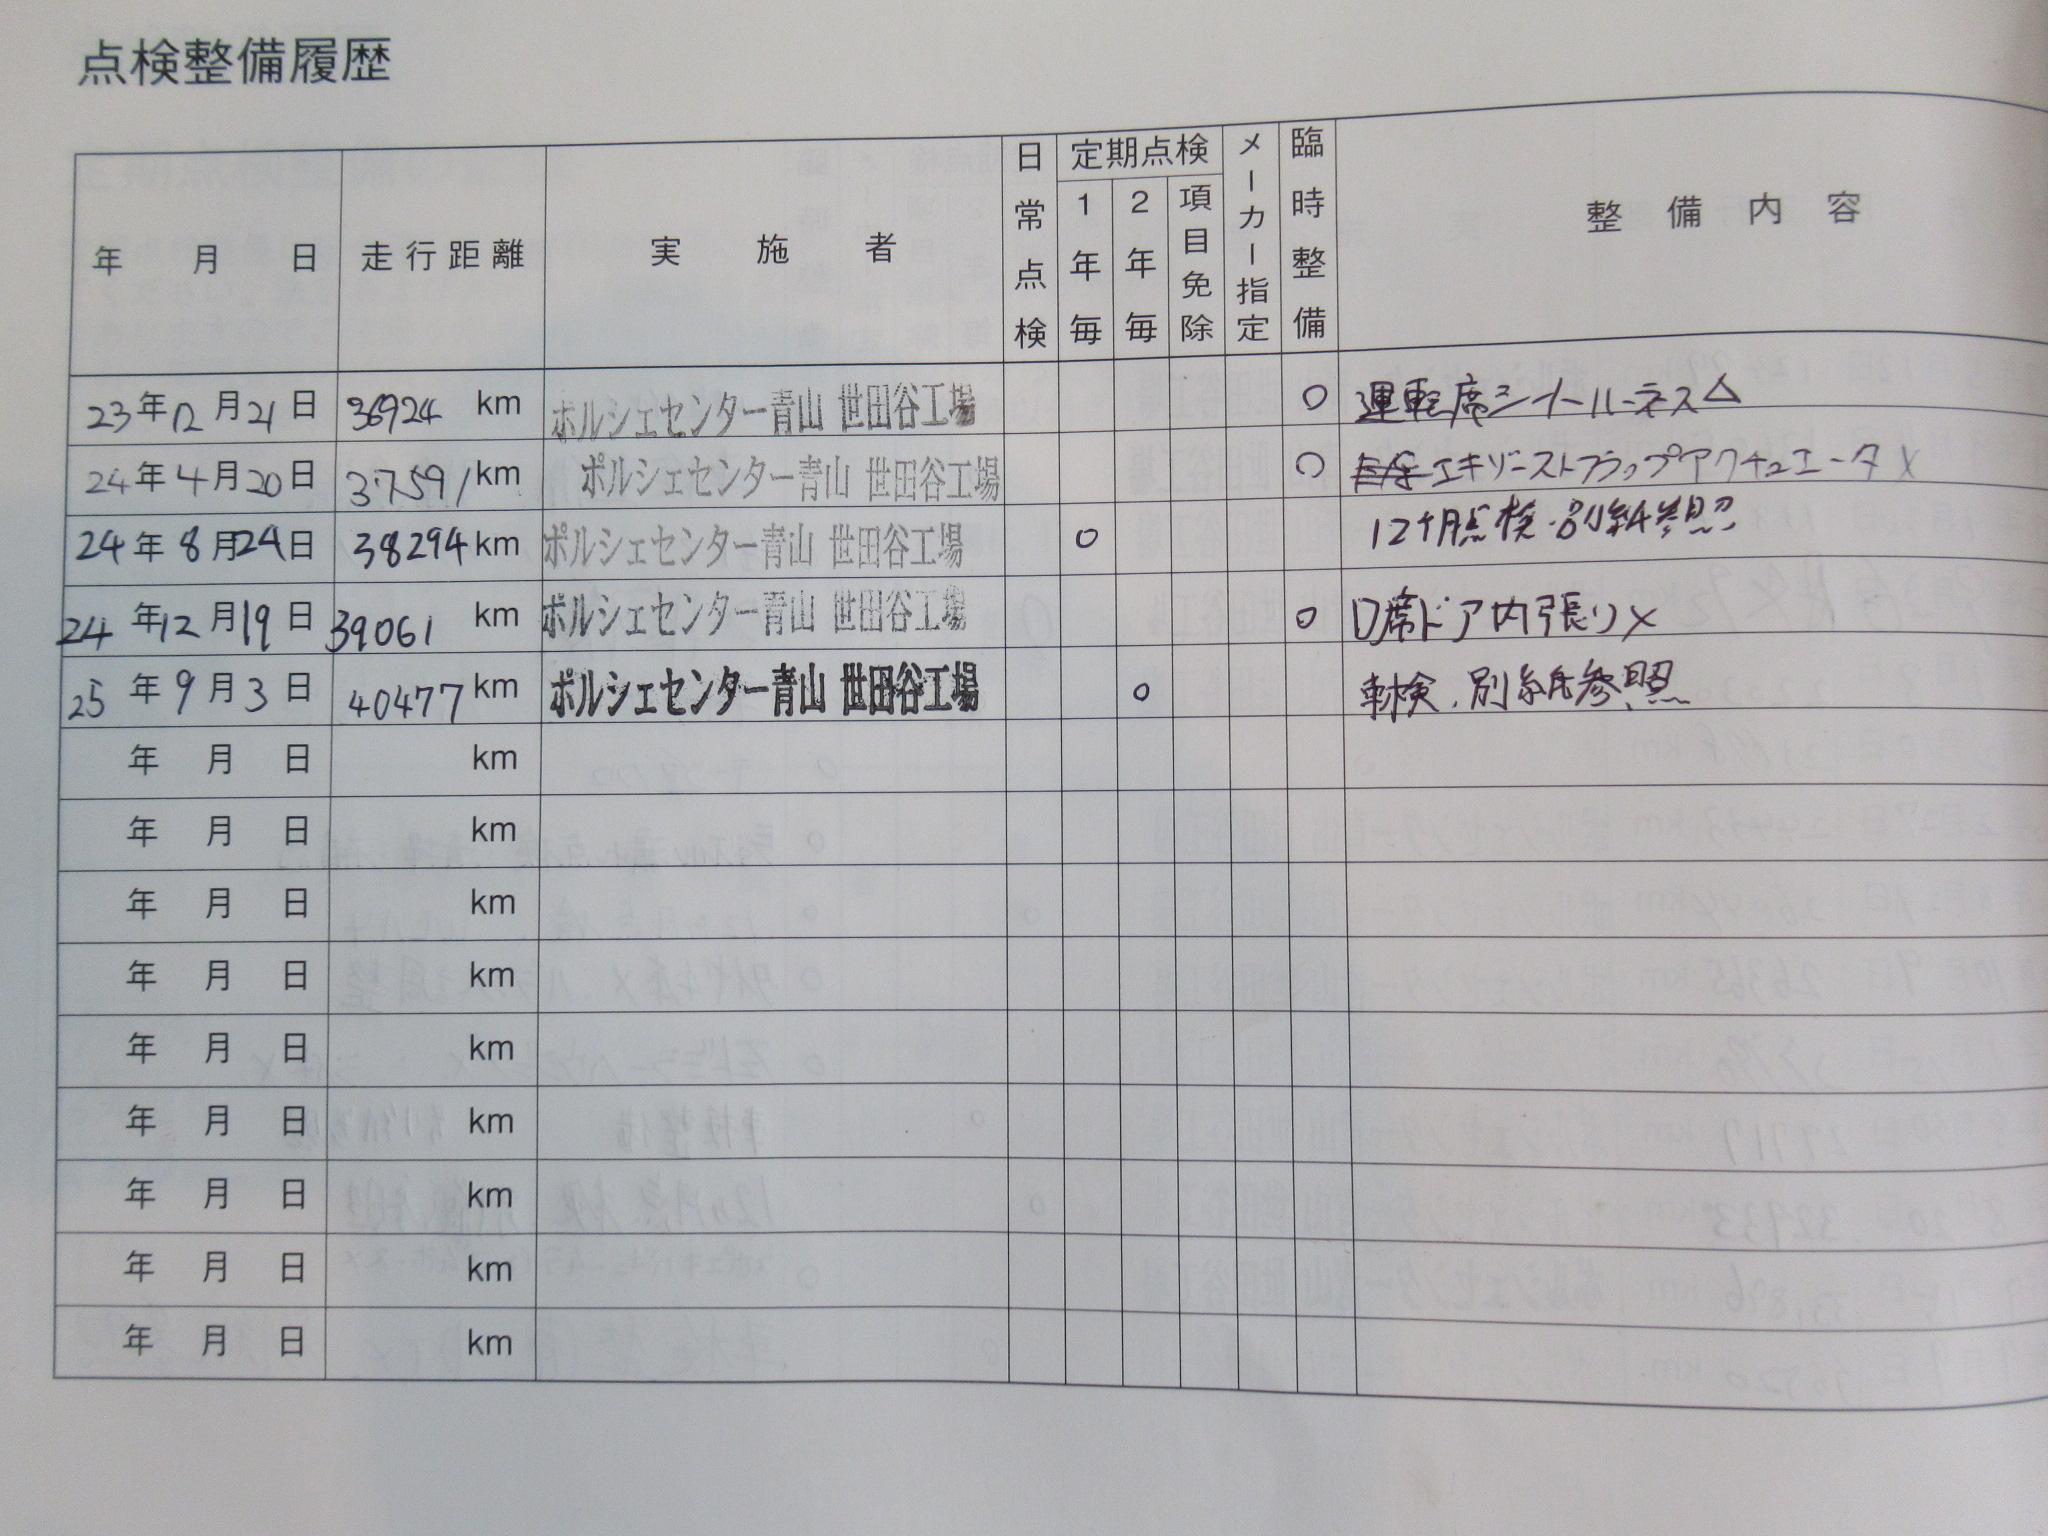 点検整備履歴
年 月 日 走行距離 実施者 日常点検 定期点検 1年毎 2年毎 項目免除 メーカー指定 臨時整備 整備内容
23年12月21日 36924 km ポルシェセンター青山 世田谷工場 ○ 運転席シートハーネス△
24年4月20日 37591 km ポルシェセンター青山 世田谷工場 ○ エキゾーストフラップアクチュエータ×
24年8月24日 38294 km ポルシェセンター青山 世田谷工場 ○ 12ヶ月点検.別紙参照
24年12月19日 39061 km ポルシェセンター青山 世田谷工場 ○ D席ドア内張り×
25年9月3日 40477 km ポルシェセンター青山 世田谷工場 ○ 車検.別紙参照
年 月 日 km
年 月 日 km
年 月 日 km
年 月 日 km
年 月 日 km
年 月 日 km
年 月 日 km
年 月 日 km
年 月 日 km